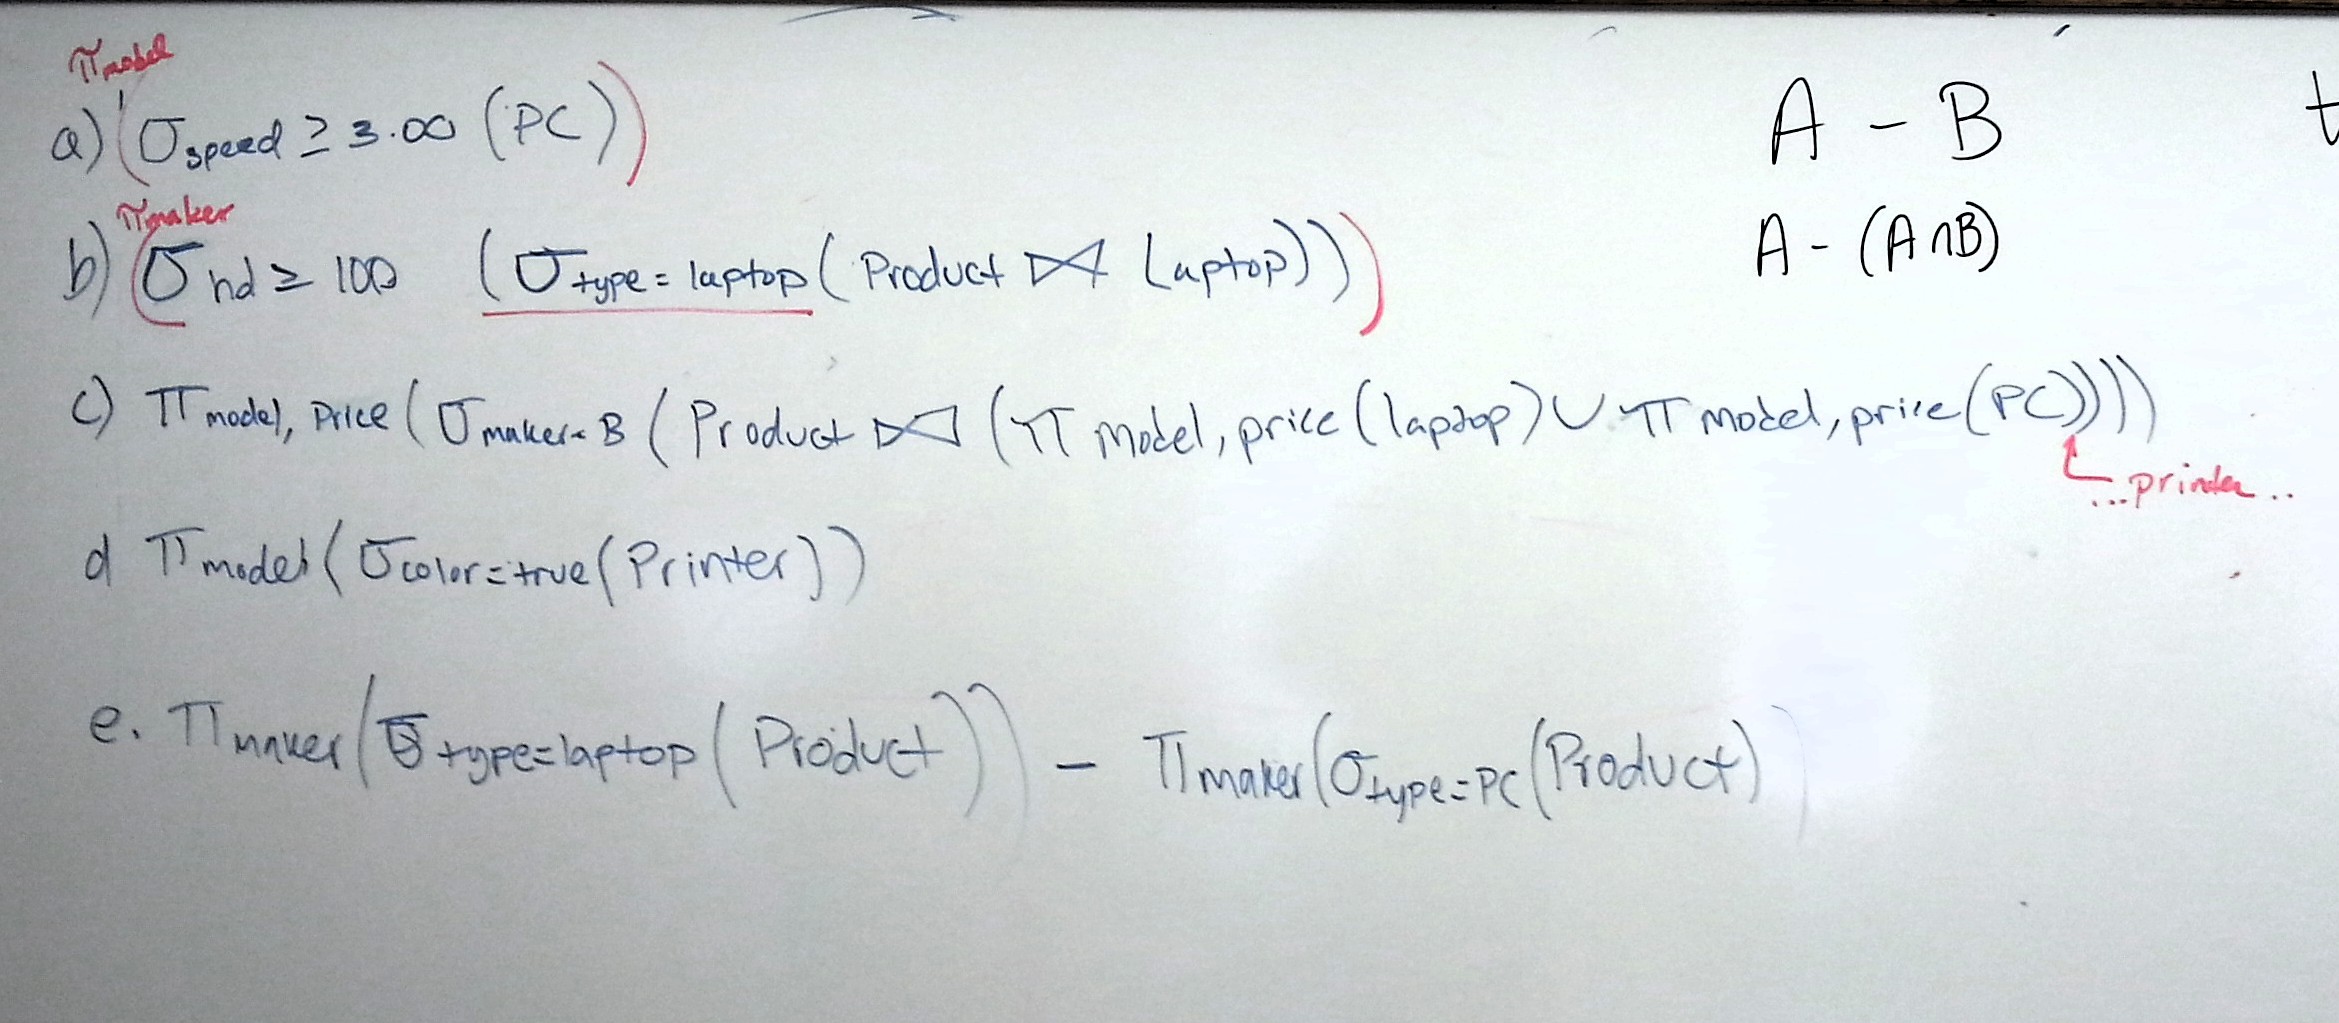 π model
a) (σ speed ≥ 3.00 (PC))
A - B
t
π maker
b) (σ hd ≥ 100 (σ type = laptop (Product ⋈ Laptop)))
A - (A ∩ B)
c) π model, price (σ maker = B (Product ⋈ (π model, price (laptop) ∪ π model, price (PC))))
...printer..
d π model (σ color = true (Printer))
e. π maker (σ type = laptop (Product)) - π maker (σ type = PC (Product))